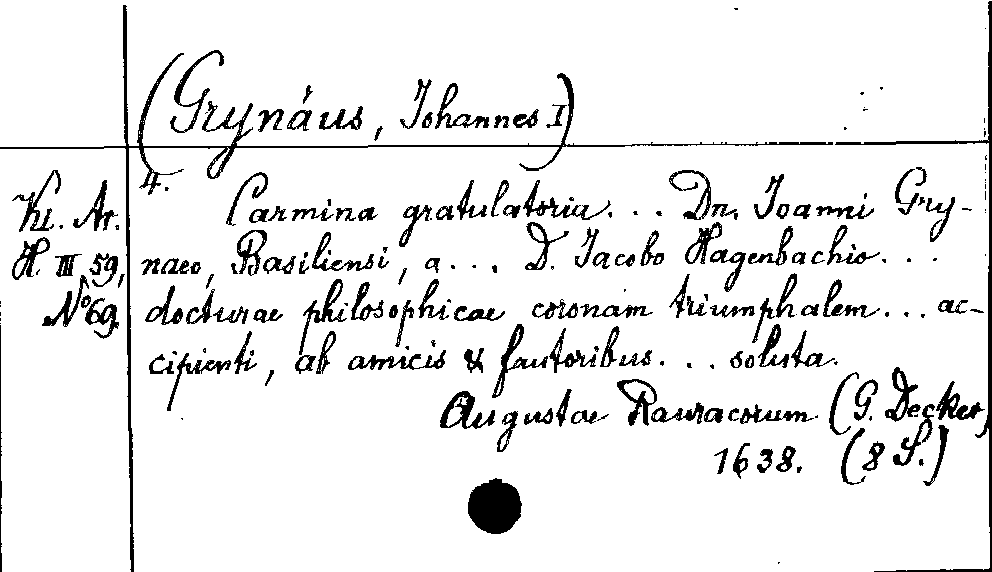 (Grynäus, Johannes I)
4.
Ki. Ar.
H. III 59,
No 69.
Carmina gratulatoria... Dn. Ioanni Gry-
naeo, Basiliensi, a... D. Iacobo Hagenbachio...
docturae philosophicae coronam triumphalem... ac-
cipienti, ab amicis & fautoribus... soluta.
Augustae Rauracorum (G. Decker)
1638. (8 S.)